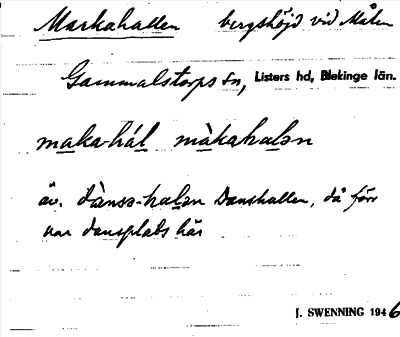 Markahallen bergshöjd vid Målen
Gammalstorps sn, Listers hd, Blekinge län.
maka-hál màkahalən
äv. dànsə-halən Danshallen, då förr
var dansplats här
J. SWENNING 1946